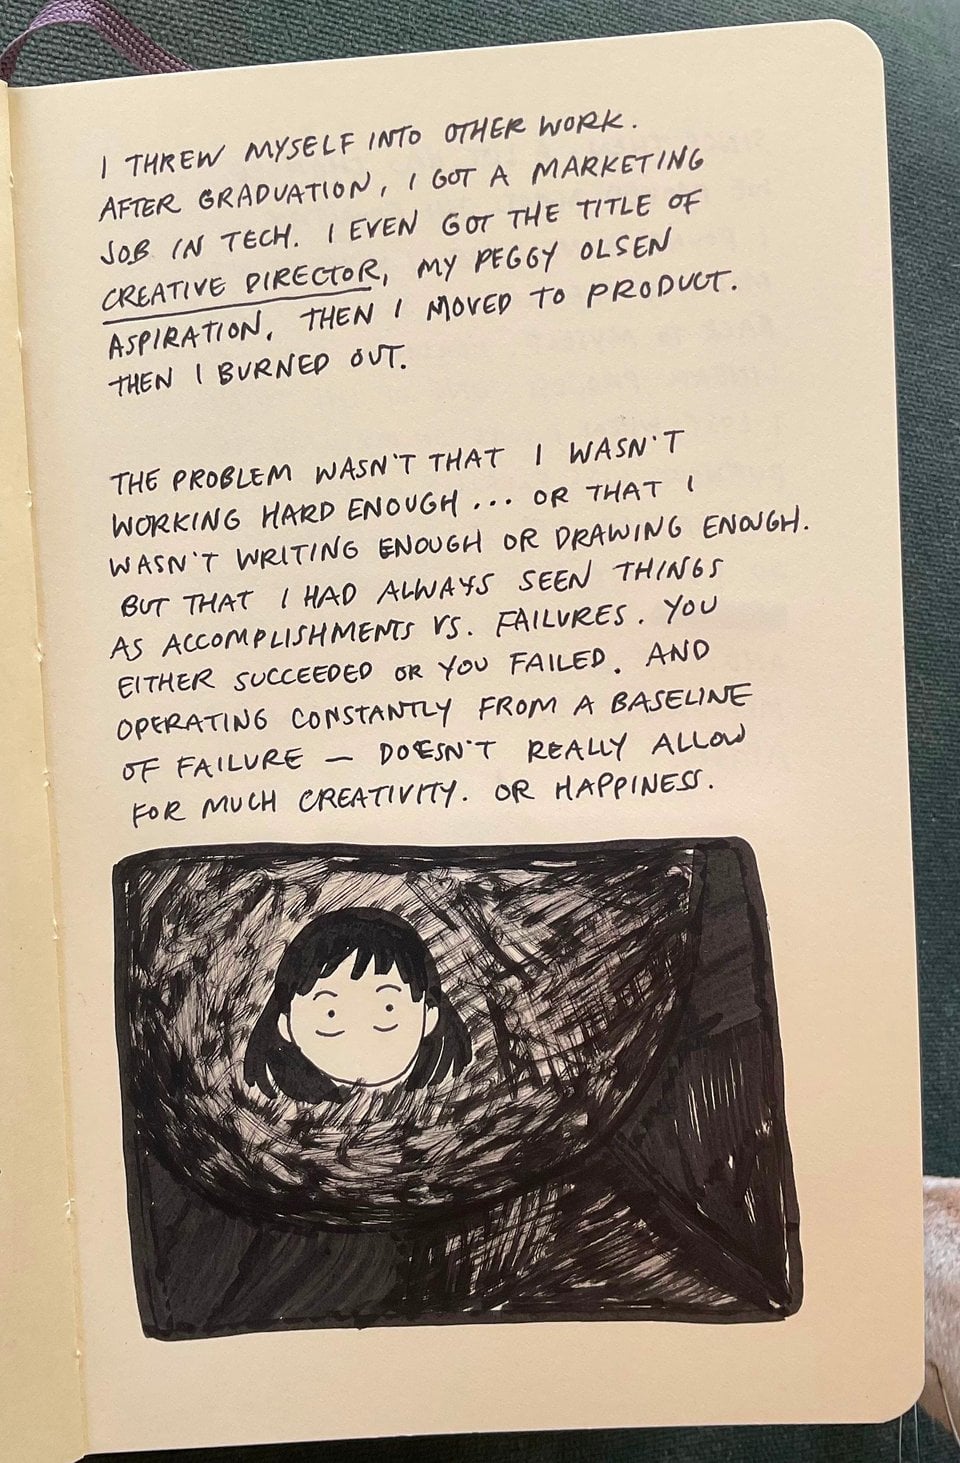 I THREW MYSELF INTO OTHER WORK.
AFTER GRADUATION, I GOT A MARKETING
JOB IN TECH. I EVEN GOT THE TITLE OF
CREATIVE DIRECTOR, MY PEGGY OLSEN
ASPIRATION. THEN I MOVED TO PRODUCT.
THEN I BURNED OUT.
THE PROBLEM WASN'T THAT I WASN'T
WORKING HARD ENOUGH... OR THAT I
WASN'T WRITING ENOUGH OR DRAWING ENOUGH.
BUT THAT I HAD ALWAYS SEEN THINGS
AS ACCOMPLISHMENTS VS. FAILURES. YOU
EITHER SUCCEEDED OR YOU FAILED. AND
OPERATING CONSTANTLY FROM A BASELINE
OF FAILURE — DOESN'T REALLY ALLOW
FOR MUCH CREATIVITY. OR HAPPINESS.